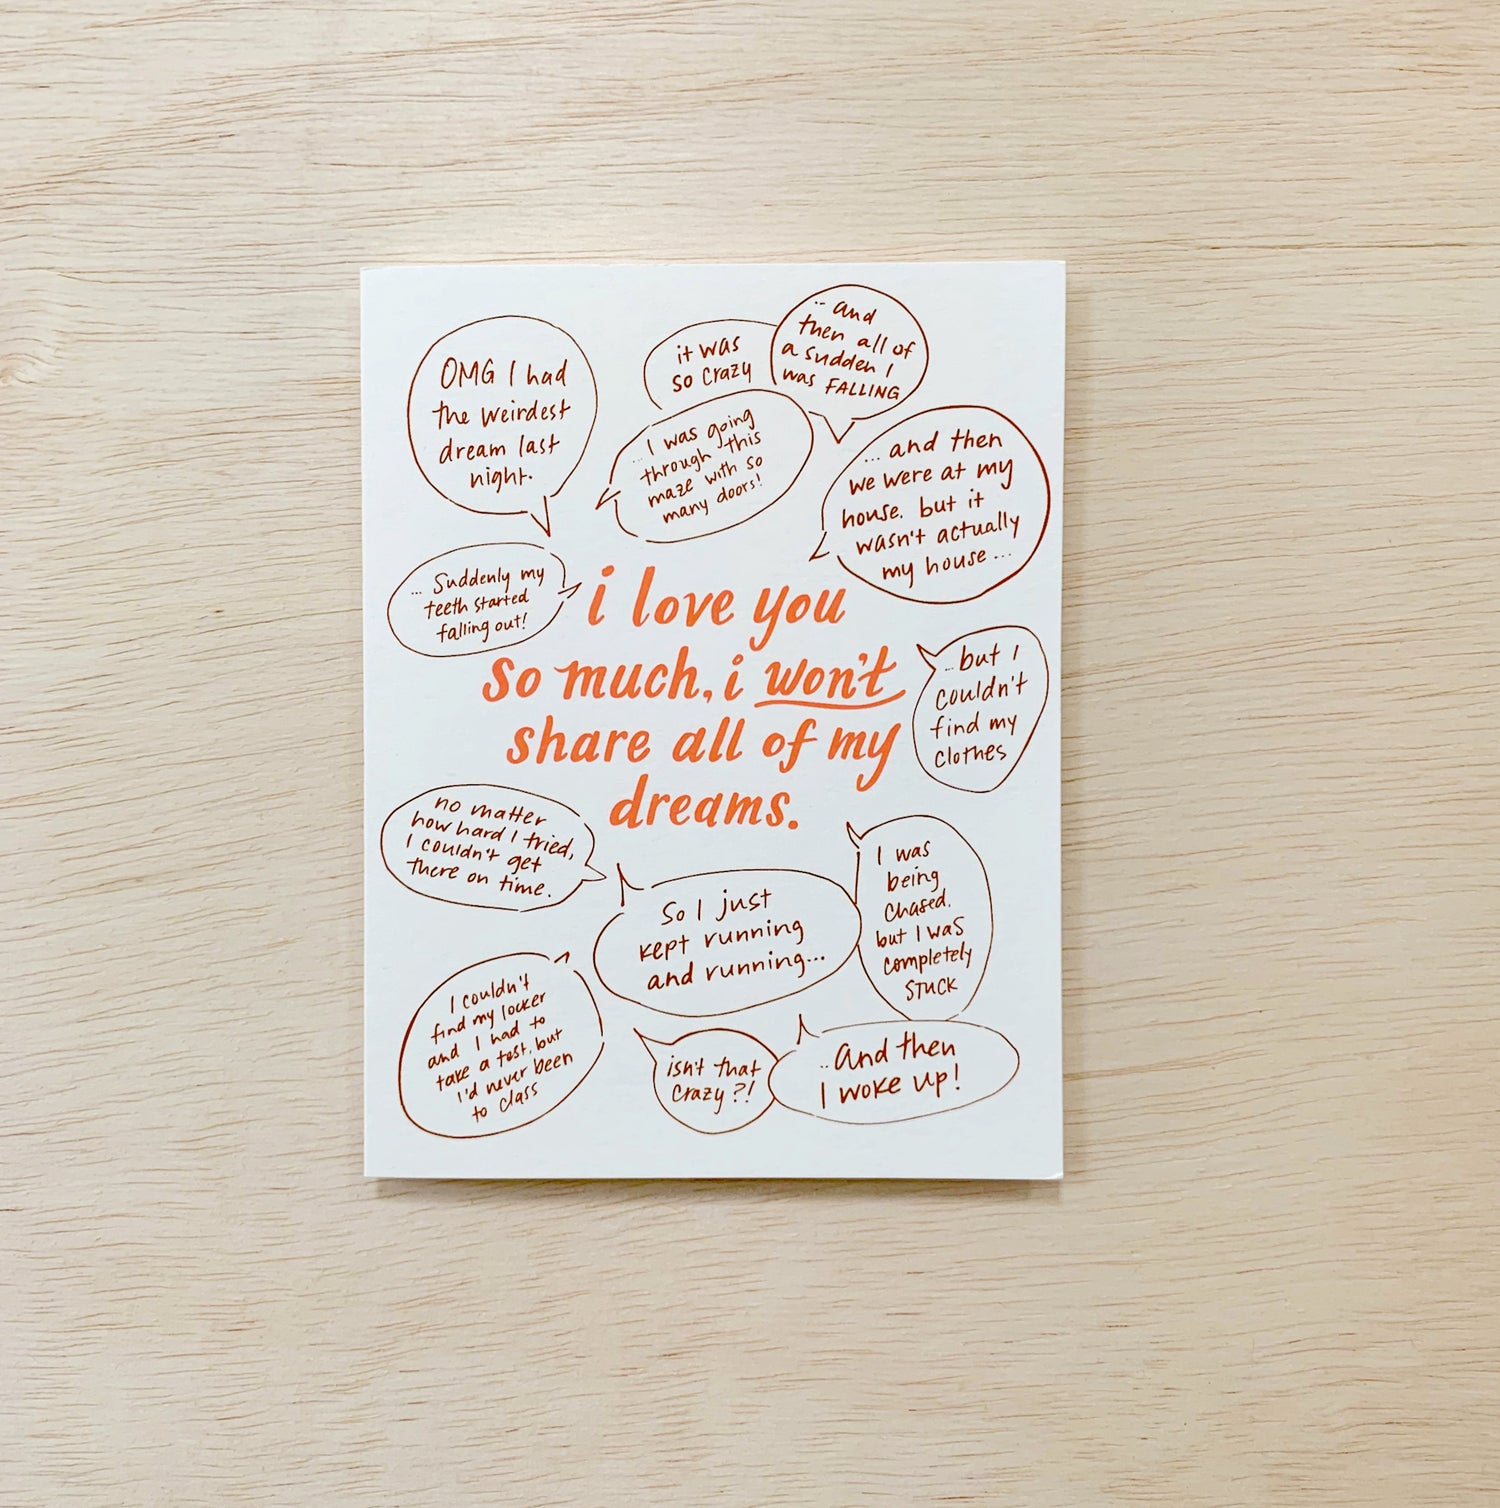 OMG I had
the weirdest
dream last
night.
it was
so crazy
... and
then all of
a sudden I
was FALLING
... I was going
through this
maze with so
many doors!
... and then
we were at my
house. but it
wasn't actually
my house...
... Suddenly my
teeth started
falling out!
i love you
so much, i won't
share all of my
dreams.
...but I
couldn't
find my
clothes
no matter
how hard I tried,
I couldn't get
there on time.
So I just
kept running
and running...
I was
being
chased.
but I was
completely
STUCK
I couldn't
find my locker
and I had to
take a test. but
I'd never been
to class
isn't that
crazy?!
..and then
I woke up!